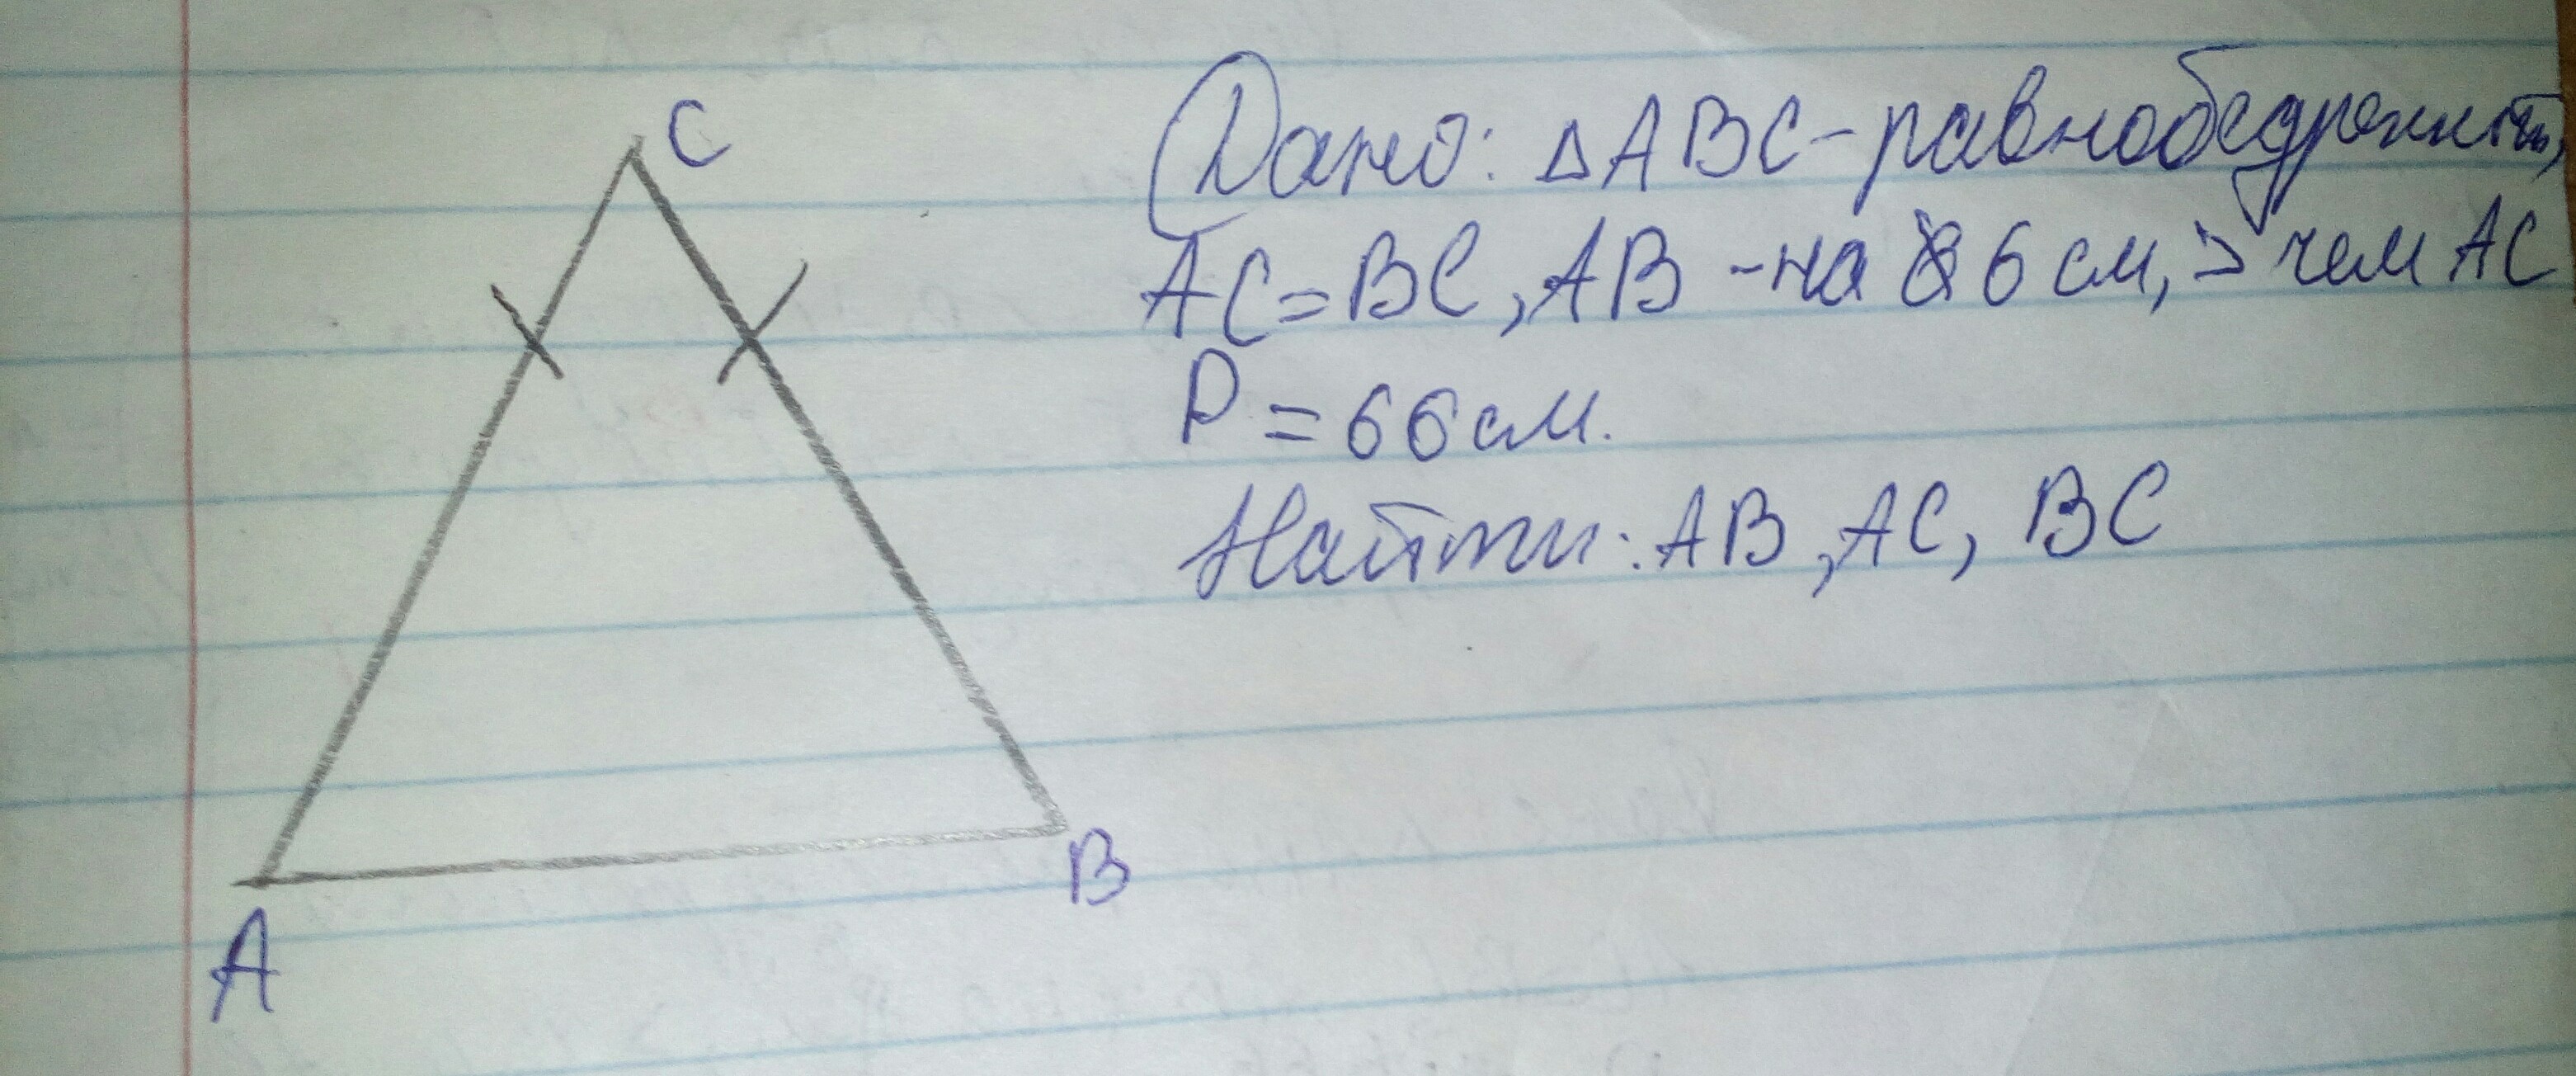 C
Дано: △ABC-равнобедренный,
AC=BC, AB -на 6 см, > чем AC
P=66см.
Найти: AB, AC, BC
B
A